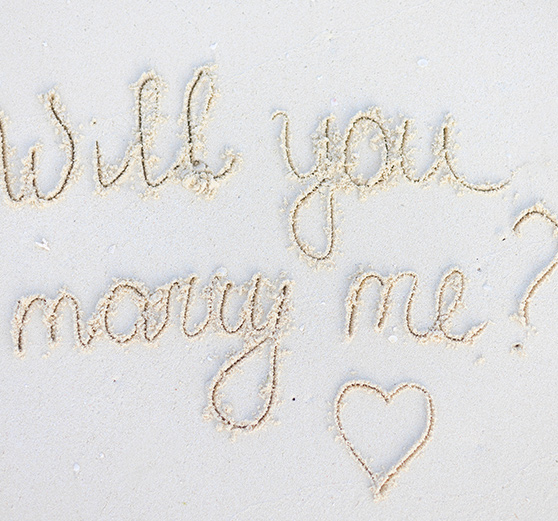 Will you
marry me?